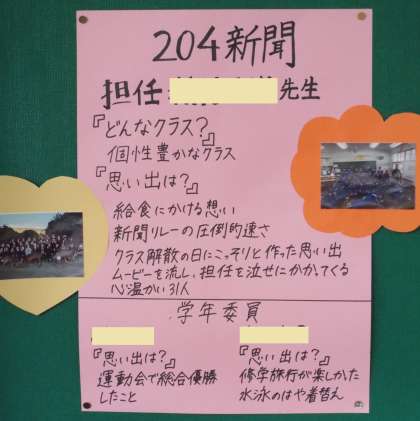 204新聞
担任 先生
『どんなクラス?』
個性豊かなクラス
『思い出は?』
給食にかける想い
新聞リレーの圧倒的速さ
クラス解散の日にこっそりと作った思い出
ムービーを流し、担任を泣せにかかってくる
心温かい31人
学年委員
『思い出は?』
運動会で総合優勝
したこと
『思い出は?』
修学旅行が楽しかった
水泳のはや着替え